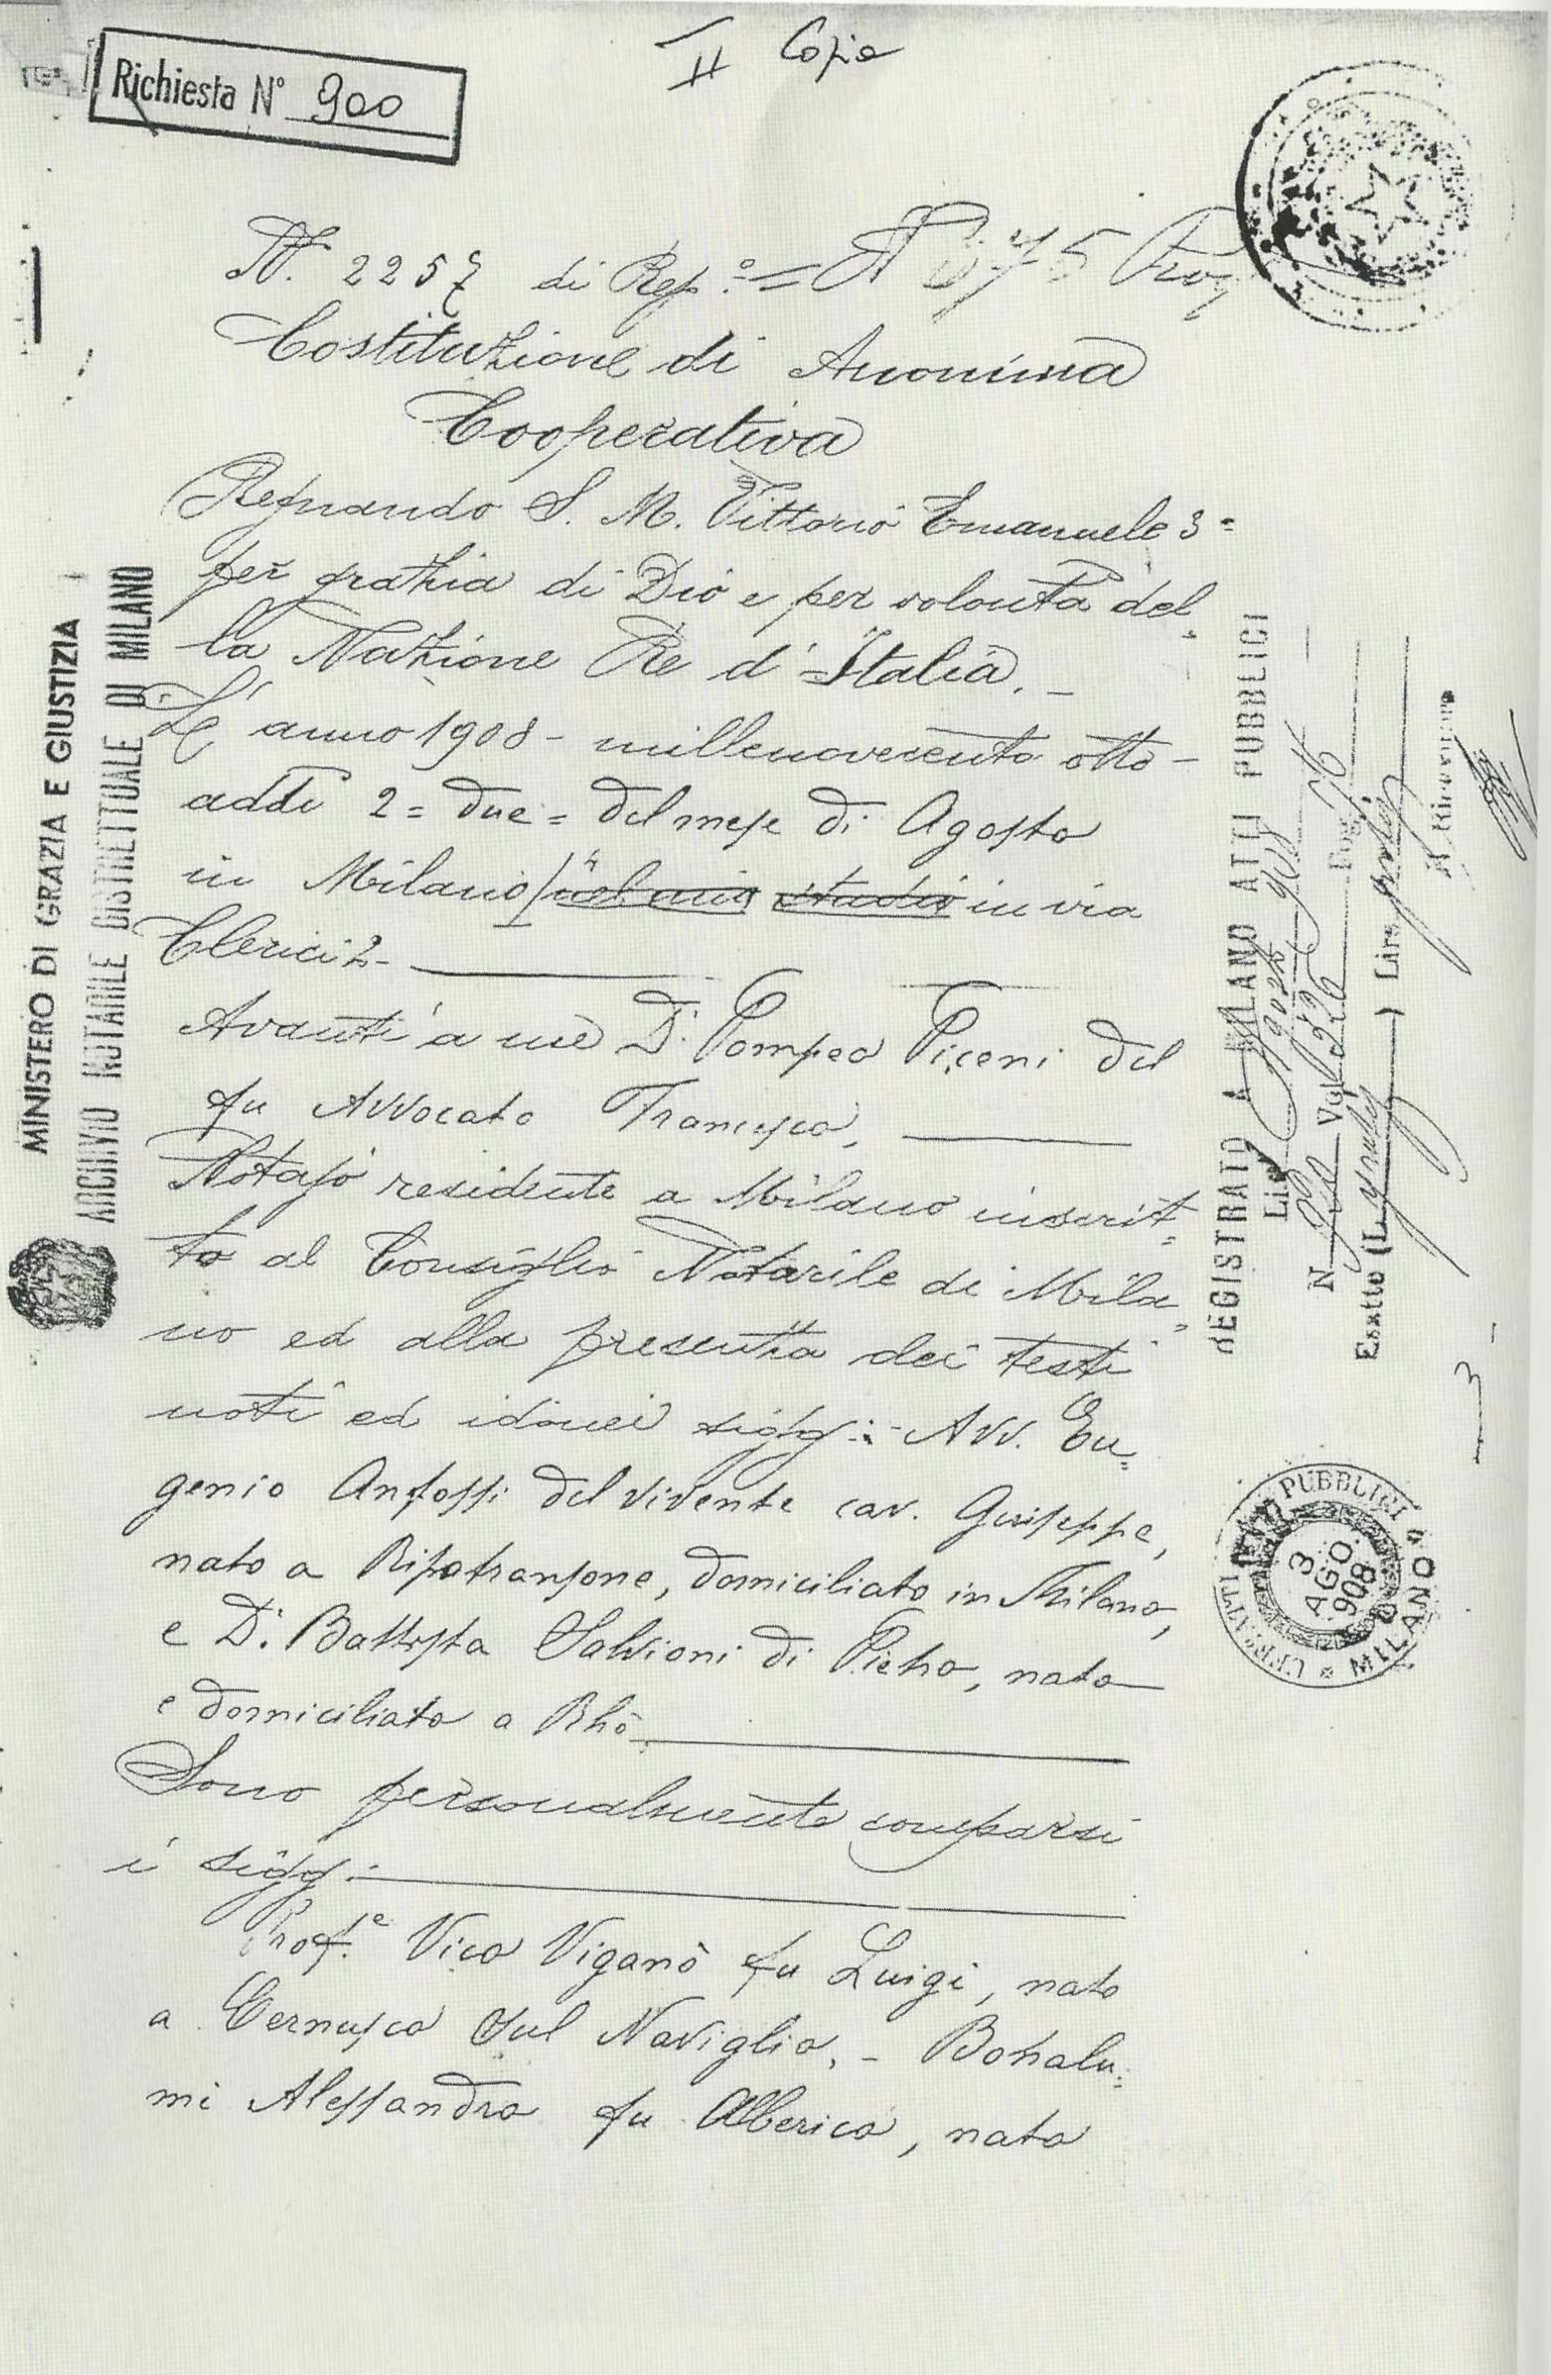 II Copia
Richiesta N° 900
N. 2257 di Rep.° =
Costituzione di Anonima
Cooperativa
Regnando S. M. Vittorio Emanuele 3=
per grazia di Dio e per volontà del=
la Nazione Re d'Italia. –
L'anno 1908 – millenovecento otto –
addì 2 = due = del mese di Agosto
in Milano / nel mio studio in via
Clerici 2 –
Avanti a me Dr. Pompeo Piceni del
fu Avvocato Francesco,
Notajo residente a Milano inscrit=
to al Consiglio Notarile di Mila=
no ed alla presenza dei testi
noti ed idonei sigg: – Avv. Eu=
genio Anfossi del vivente cav. Giuseppe,
nato a Ripatransone, domiciliato in Milano,
e Dr. Battista Salvioni di Pietro, nato
e domiciliato a Rhò
Sono personalmente comparsi
i sigg.:
Prof.e Vico Viganò fu Luigi, nato
a Cernusco Sul Naviglio. – Bonalu=
mi Alessandro fu Alberico, nato
MINISTERO DI GRAZIA E GIUSTIZIA
ARCHIVIO NOTARILE DISTRETTUALE DI MILANO
REGISTRATO A MILANO ATTI PUBBLICI
Li 3 Agosto 908
N. Vol. 226 Pag.
Esatte (L. ) Lire
Il Ricevitore
ATTI PUBBLICI
3
AGO.
908
MILANO